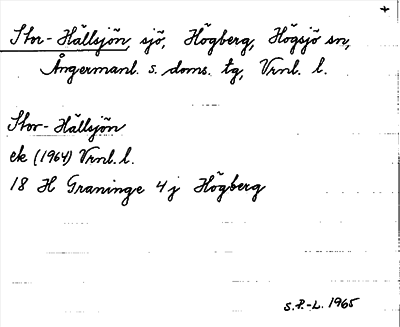 Stor-Hällsjön, sjö, Högberg, Högsjö sn,
Ångermanl. s. doms. tg, Vrnl. l.
Stor-Hällsjön
ek (1964) Vrnl. l.
18 H Graninge 4 j Högberg
S.P.-L. 1965